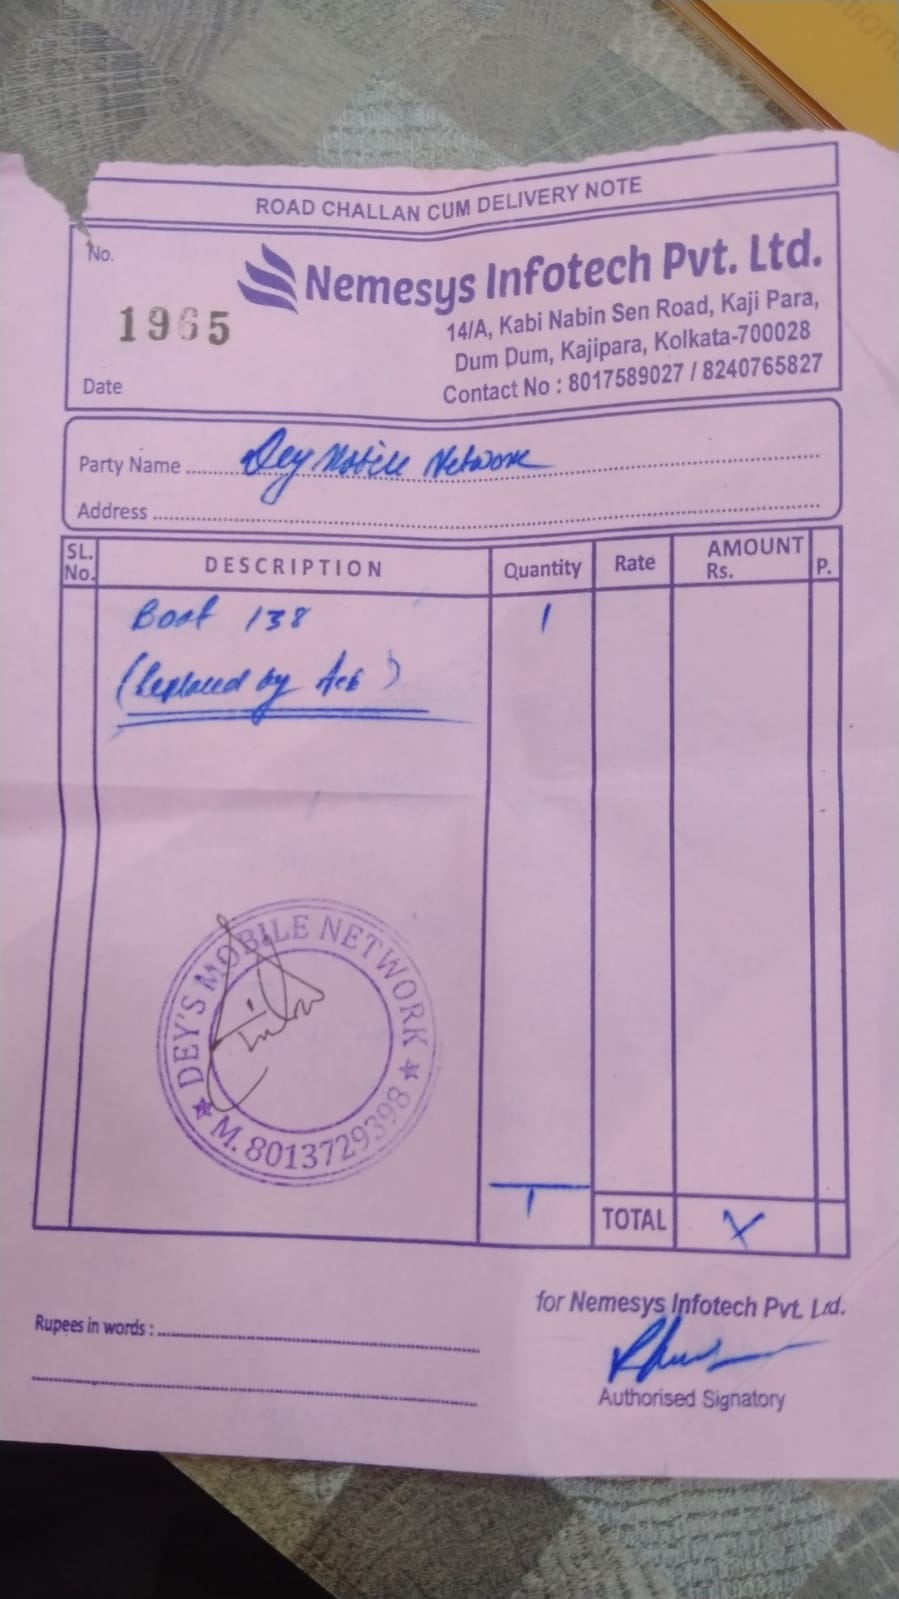 ROAD CHALLAN CUM DELIVERY NOTE
No.
1965
Date
Nemesys Infotech Pvt. Ltd.
14/A, Kabi Nabin Sen Road, Kaji Para,
Dum Dum, Kajipara, Kolkata-700028
Contact No : 8017589027 / 8240765827
Party Name Dey Mobile Network
Address
SL. No. DESCRIPTION Quantity Rate AMOUNT Rs. P.
Boat 138 1
(Replaced by
DEY'S MOBILE NETWORK
M. 8013729398
1 TOTAL X
for Nemesys Infotech Pvt. Ltd.
Rupees in words :
Authorised Signatory